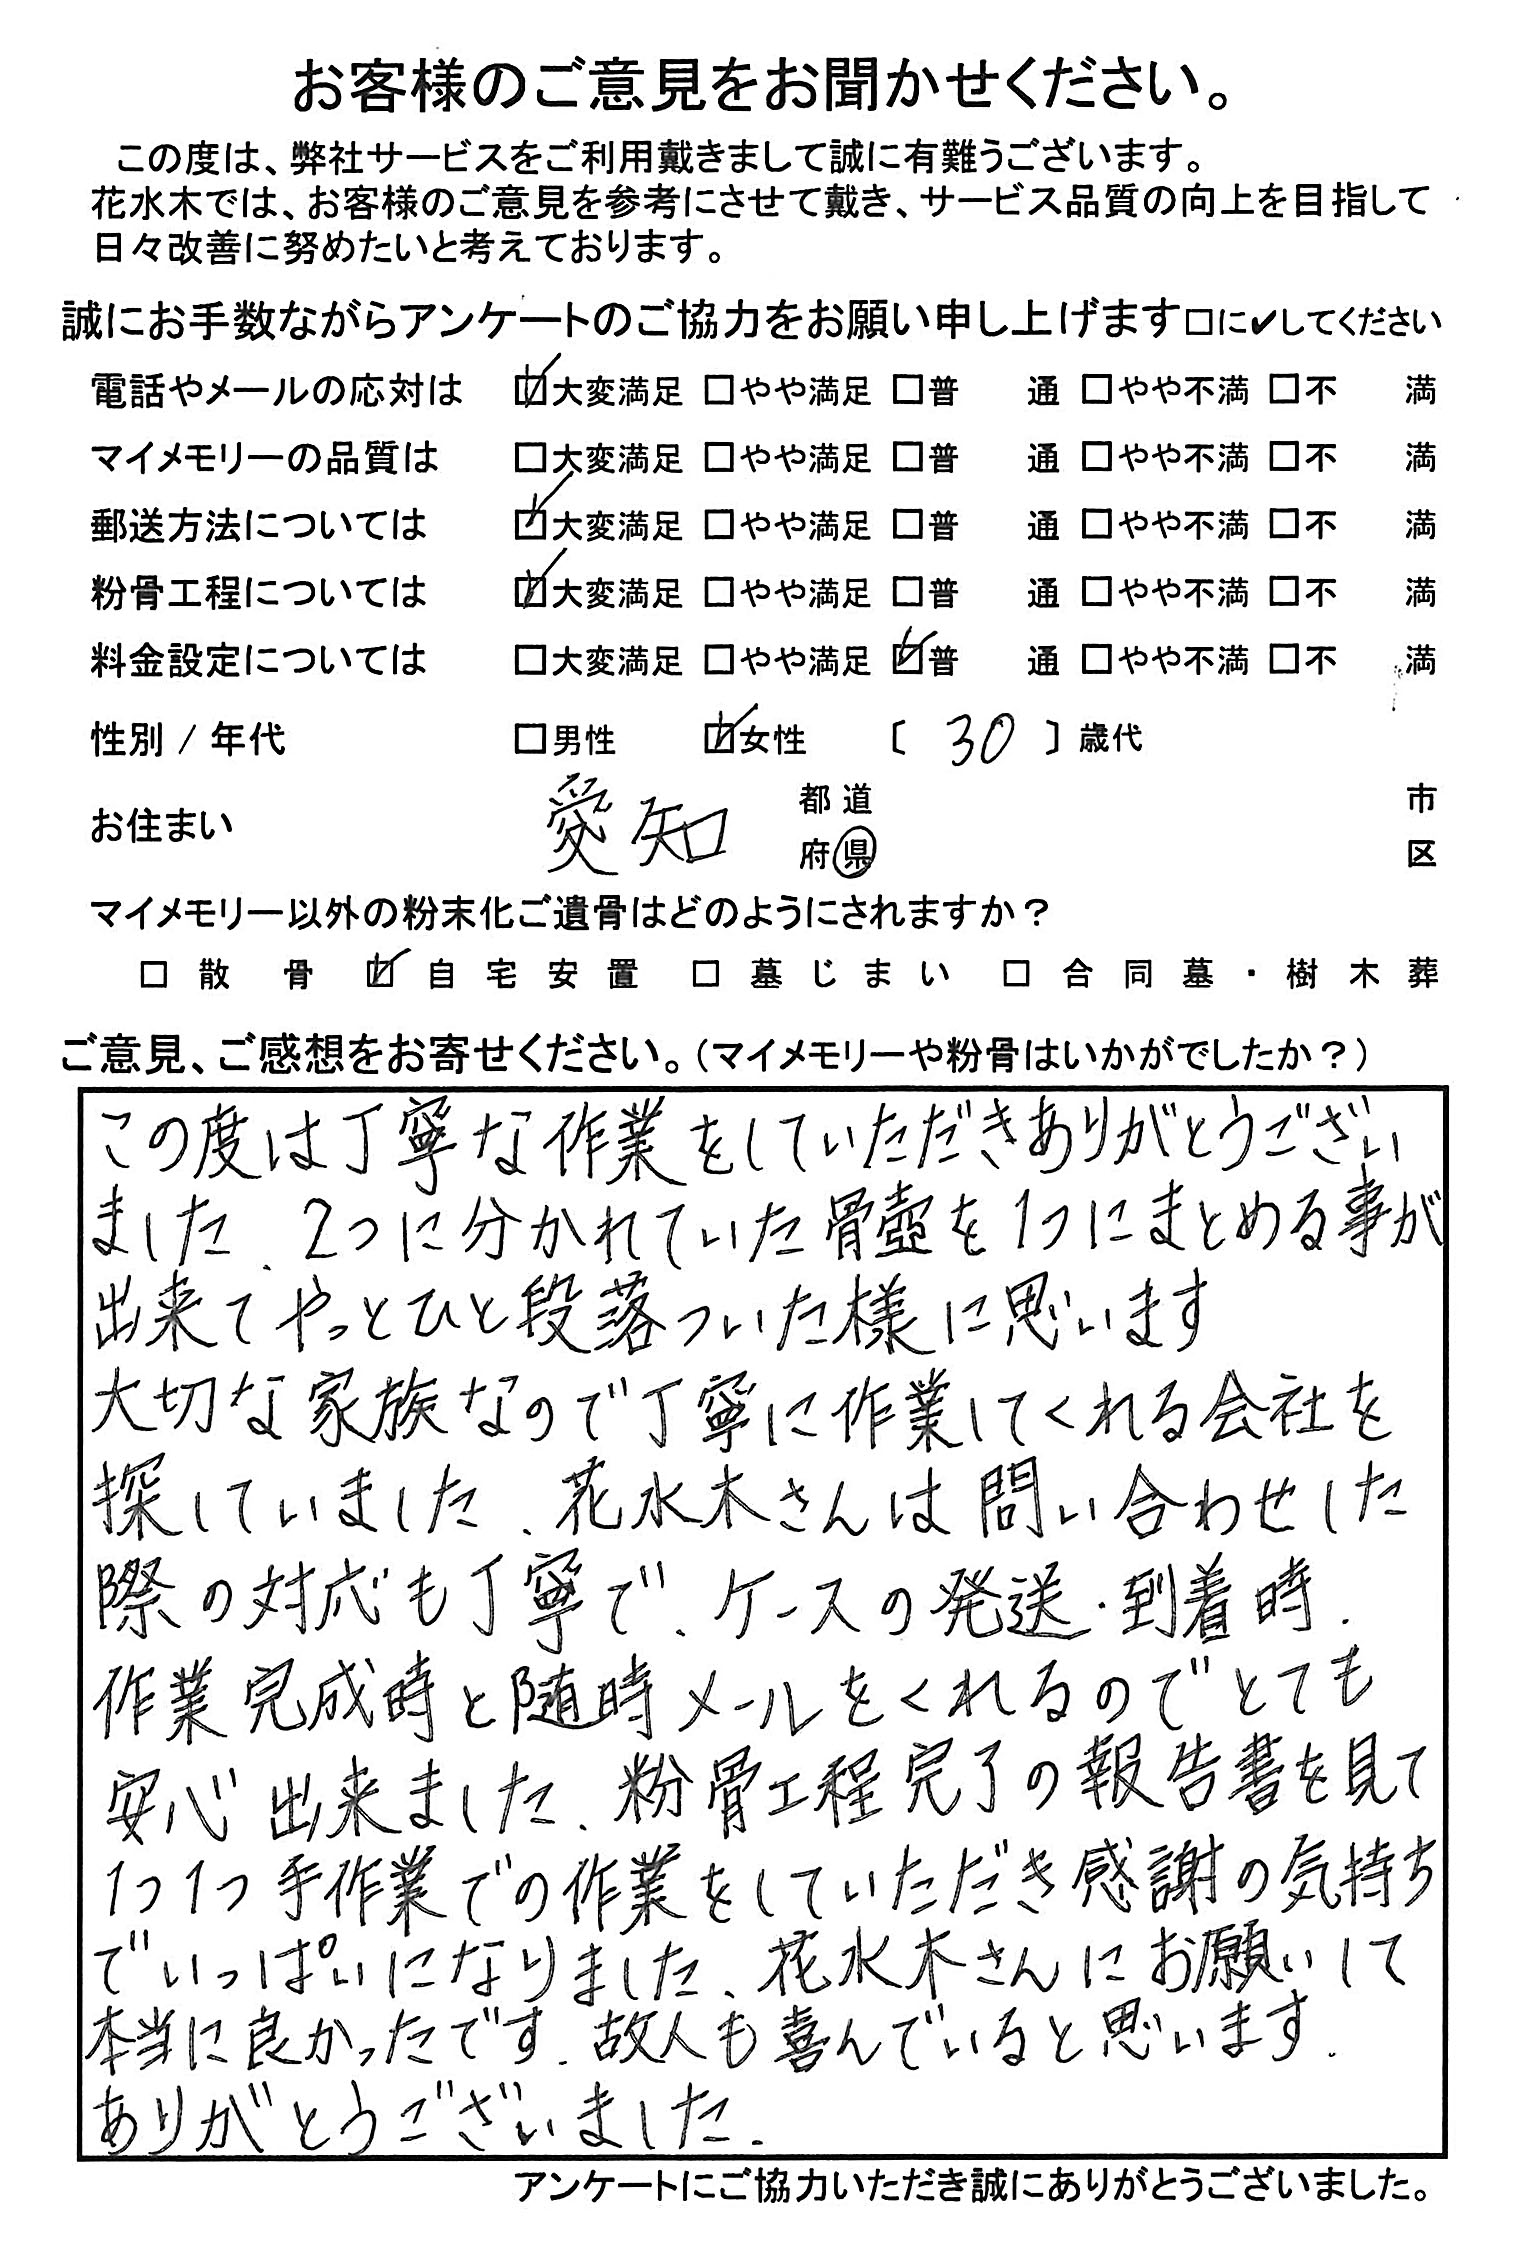 お客様のご意見をお聞かせください。
この度は、弊社サービスをご利用戴きまして誠に有難うございます。
花水木では、お客様のご意見を参考にさせて戴き、サービス品質の向上を目指して
日々改善に努めたいと考えております。
誠にお手数ながらアンケートのご協力をお願い申し上げます□に✔してください
電話やメールの応対は ☑大変満足 □やや満足 □普 通 □やや不満 □不 満
マイメモリーの品質は □大変満足 □やや満足 □普 通 □やや不満 □不 満
郵送方法については ☑大変満足 □やや満足 □普 通 □やや不満 □不 満
粉骨工程については ☑大変満足 □やや満足 □普 通 □やや不満 □不 満
料金設定については □大変満足 □やや満足 ☑普 通 □やや不満 □不 満
性別 / 年代 □男性 ☑女性 〔 30 〕歳代
お住まい 愛知 都道府県 市区
マイメモリー以外の粉末化ご遺骨はどのようにされますか？
□ 散骨 ☑ 自宅安置 □ 墓じまい □ 合同墓・樹木葬
ご意見、ご感想をお寄せください。（マイメモリーや粉骨はいかがでしたか？）
この度は丁寧な作業をしていただきありがとうござい
ました、2つに分かれていた骨壺を1つにまとめる事が
出来てやっとひと段落ついた様に思います
大切な家族なので丁寧に作業してくれる会社を
探していました、花水木さんは問い合わせした
際の対応も丁寧で、ケースの発送・到着時、
作業完成時と随時メールをくれるのでとても
安心出来ました、粉骨工程完了の報告書を見て
1つ1つ手作業での作業をしていただき感謝の気持ち
でいっぱいになりました、花水木さんにお願いして
本当に良かったです、故人も喜んでいると思います、
ありがとうございました、
アンケートにご協力いただき誠にありがとうございました。